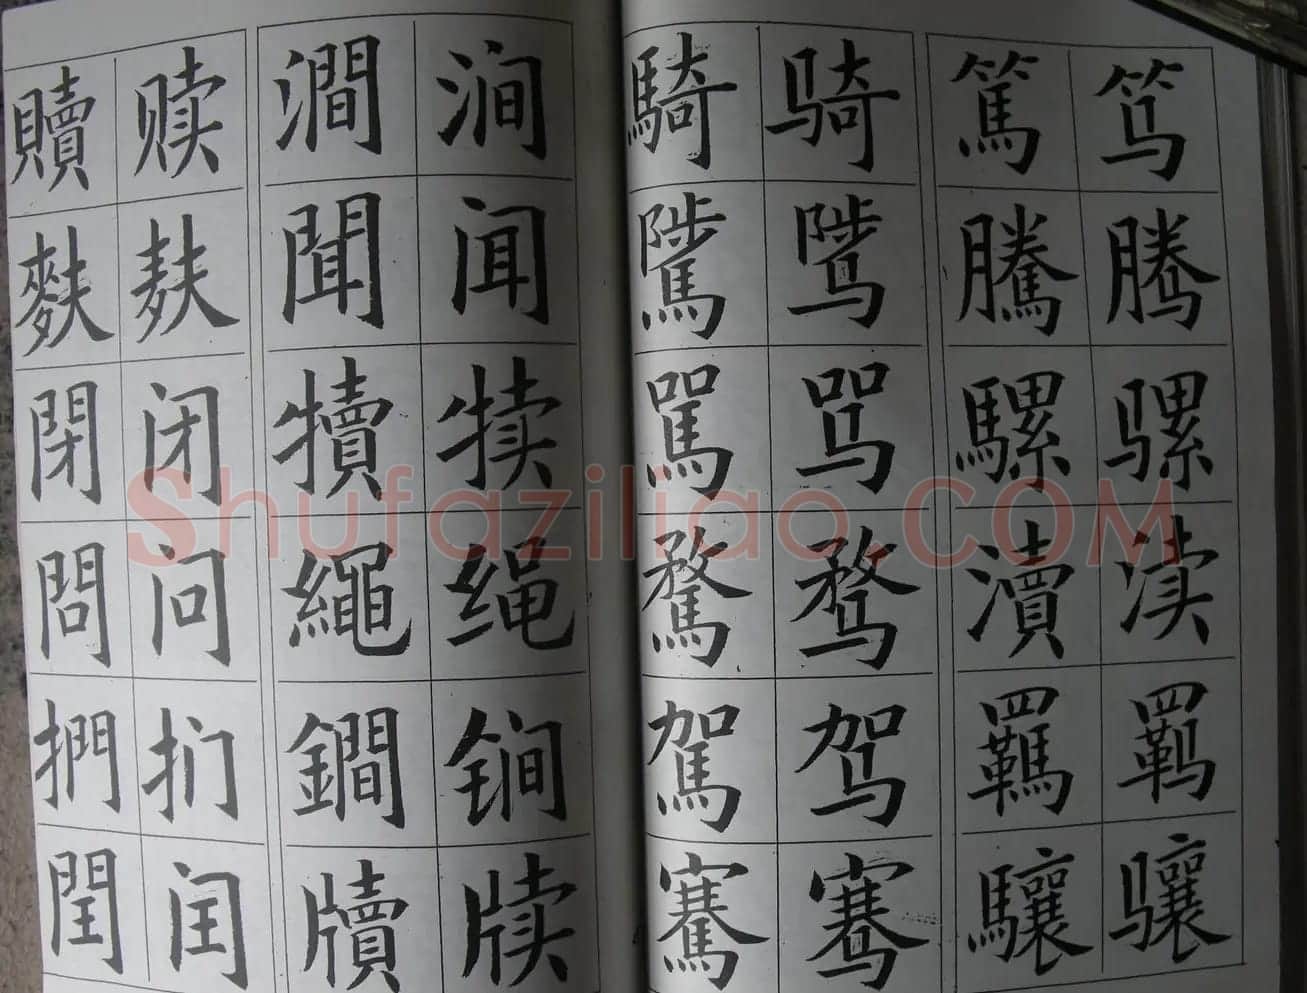 贖 赎 澗 涧 騎 骑 篤 笃
麩 麸 聞 闻 騭 骘 騰 腾
閉 闭 犢 犊 駡 骂 騾 骡
問 问 繩 绳 騖 骛 瀆 渎
捫 扪 鐧 锏 駕 驾 羈 羁
閏 闰 牘 牍 騫 骞 驤 骧
Shufaziliao.COM